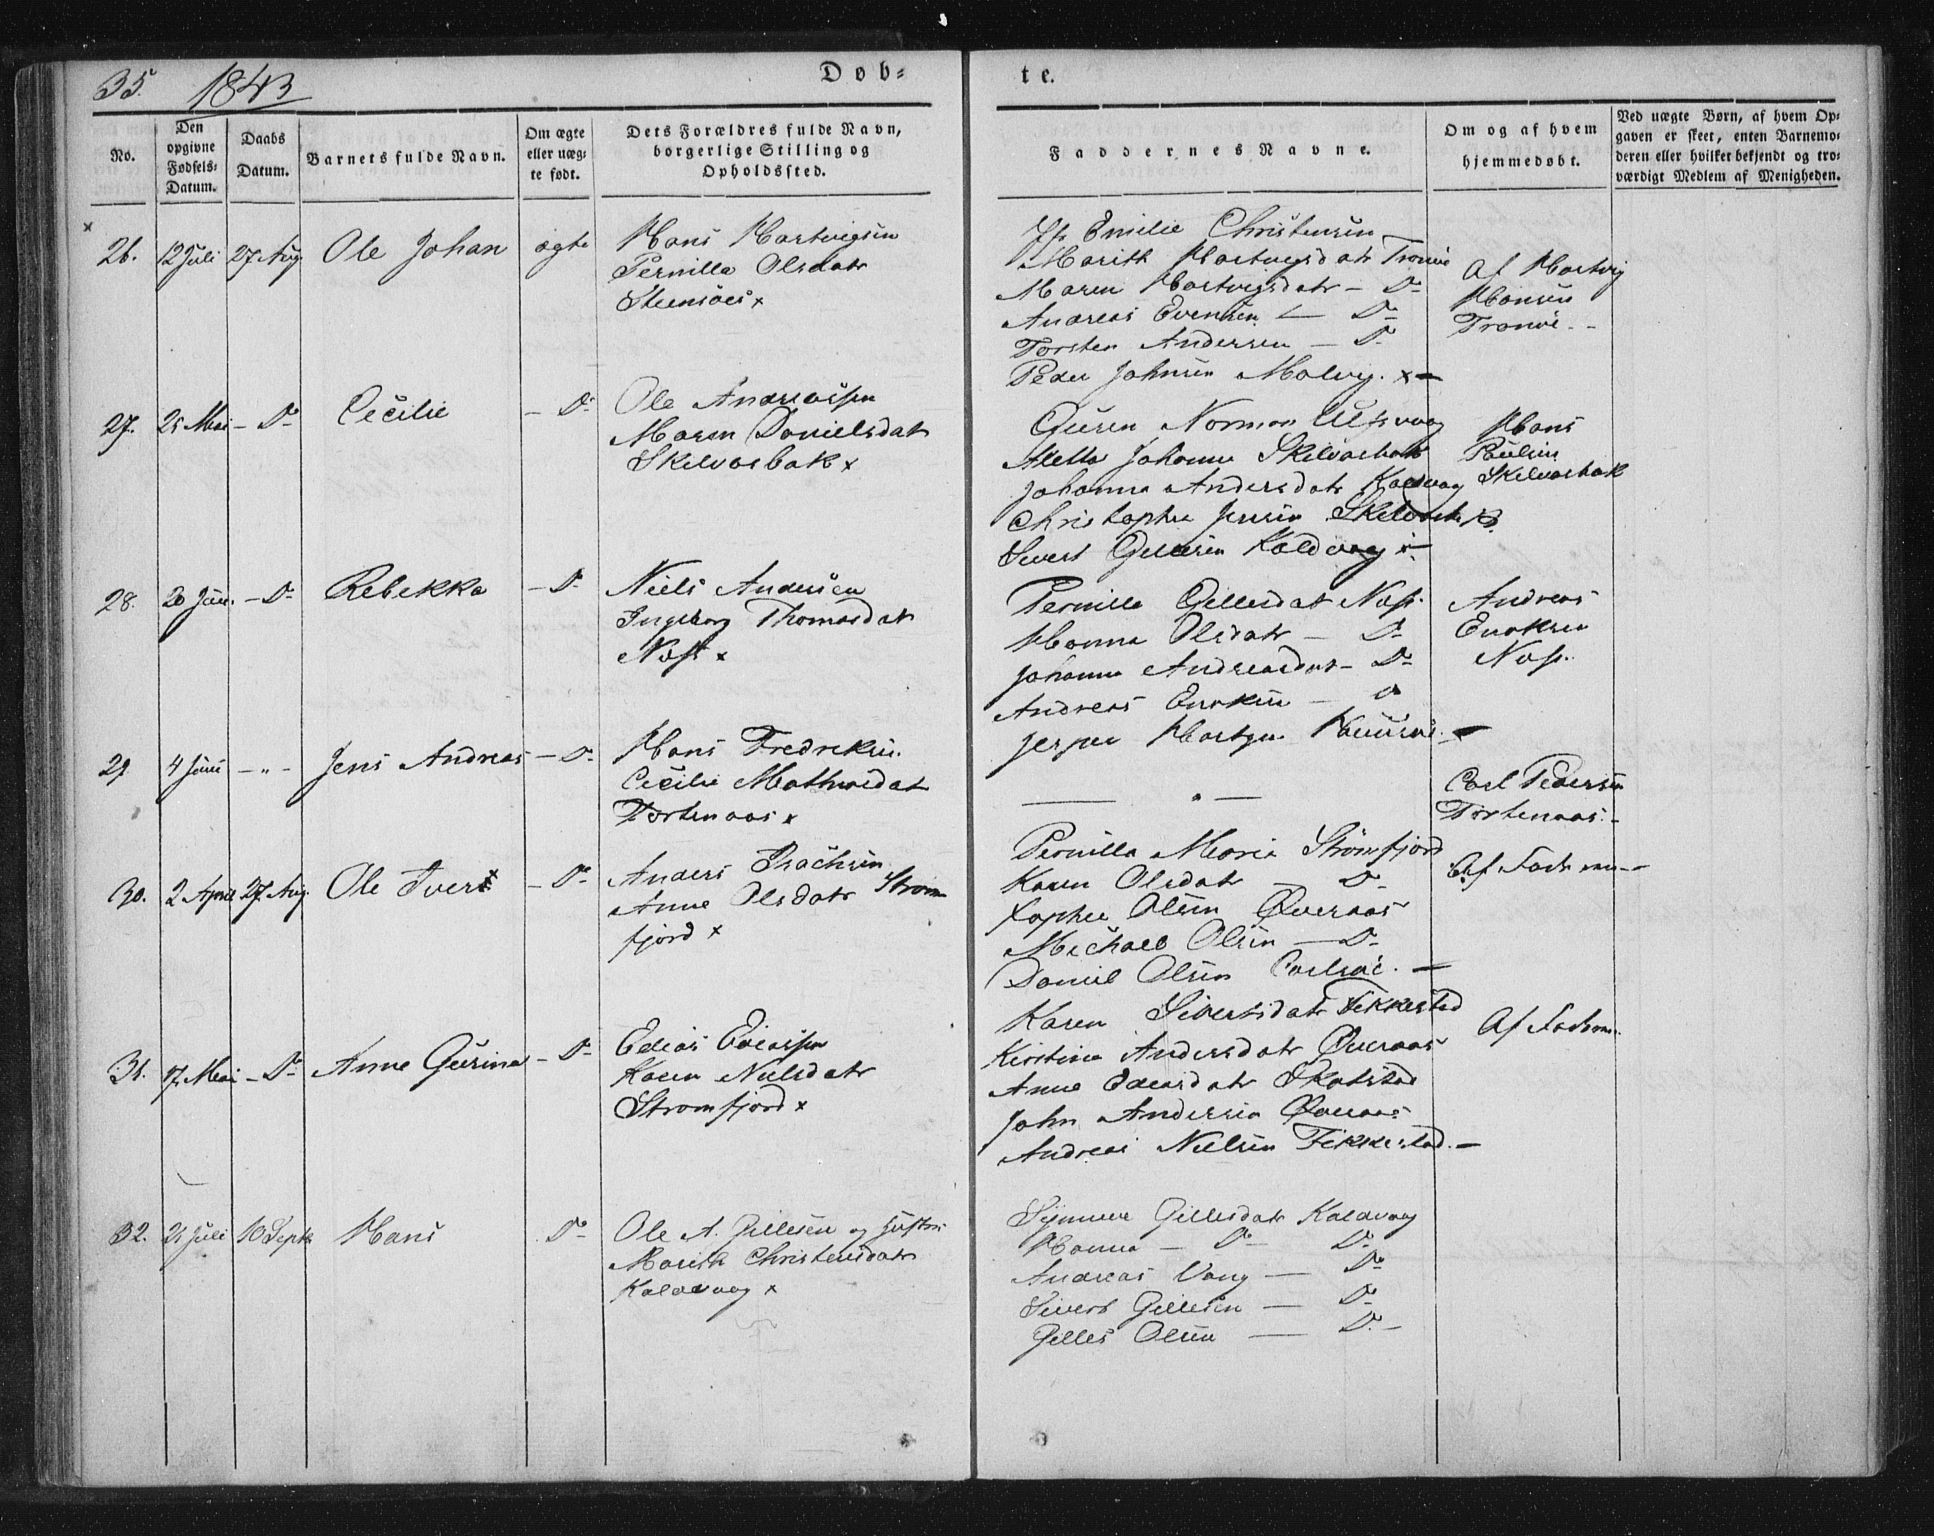 35. 1843 Døb= te.
No.
Den opgivne Fødsels= Datum.
Daabs Datum.
Barnets fulde Navn.
Om ægte eller uæg= te født.
Dets Forældres fulde Navn, borgerlige Stilling og Opholdssted.
Faddernes Navne.
Om og af hvem hjemmedøbt.
Ved uægte Børn, af hvem Op= gaven er skeet, enten Barnemo= deren eller hvilket bekjendt og tro= værdigt Medlem af Menigheden.
26. 12 Juli 27 Aug. Ole Johan ægte
Hans Hartvigsen
Pernilla Olsdatr
Steensøes x
Emilie Christensen
Marith Hartvigsdatr Tranøe
Maren Hartvigsdatr - Do
Andreas Evensen - Do
Torsten Andersen - Do
Peder Johnsen Molvig. x -
Af Hartvig
Hansen
Tranøe. -
27. 25 Mai - Do Cecilie - Do
Ole Andreassen
Maren Danielsdatr
Skelvasbak x
Guren Norman Ulfsvaag
Aletta Johanna Skelvasbak
Johanna Andersdatr Kaldvaag
Christopher Jensen Skelvasbk
Sivert Gillesen Kaldvaag -
Hans
Paulsen
Skelvasbak
28. 20 Juni. - Do Rebekka - Do
Niels Andersen
Ingeborg Thomasdatr
Næss x
Pernilla Gillesdat Næss.
Hanna Olsdatr - Do
Johanna Andreasdat - Do
Andreas Enoksen - Do
Jesper Hartvigsen
Andreas
Enoksen
Næss.
29. 4 Juni - " - Jens Andreas - Do
Hans Fredriksen
Cecilie Mathiasdat
Tortenaas x
- " -
Carl Pedersen
Tortenaas. -
30. 2 April 27 Aug. Ole Ivert - Do
Anders Isachsen
Anne Olsdatr Strøm
fjord x
Pernilla Maria Strømfjord
Karen Olsdatr - Do
Topher Olsen Øveraas
Michael Olsen - Do
Daniel Olsen Carlsøe. -
Af Fadrene -
31. 17 Mai - Do Anne Gurina - Do
Edias Ediassen
Karen Nielsdatr
Strømfjord x
Karen Sivertsdatr Fikkestad
Kirstina Andersdatr Øveraas
Anne Ediasdatr Skotstad
John Andersen Øveraas
Andreas Nielsen Fikkestad. -
Af Fadrene.
32. 21 Juli 10 Septr Hans Do
Ole A. Gillesen og Hustru
Marith Christensdatr
Kaldvaag x
Synneva Gillesdatr Kaldvaag
Hanna - Do Do
Andreas Vang - Do
Sivert Gillesen - Do
Gilles Olsen - Do -